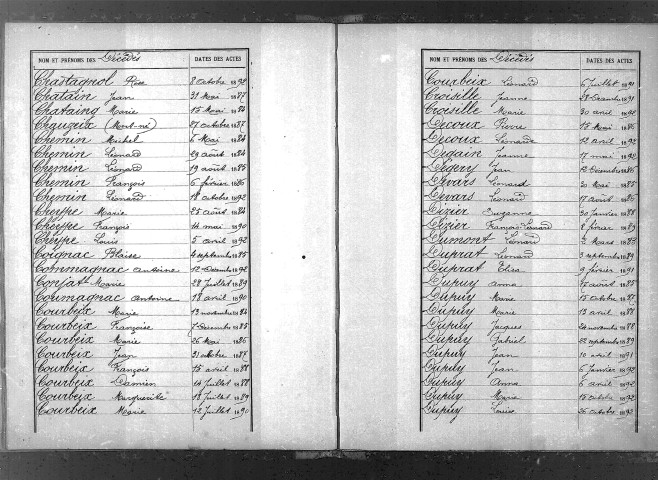 NOM ET PRÉNOMS DES Décédés DATES DES ACTES
Chastagnol Rose 8 octobre 1892
Chatain Jean 31 Mai 1887
Chataing Marie 15 Mai 1884
Chauzeix (Mort-né) 27 octobre 1887
Chemin Michel 6 Mai 1884
Chemin Léonard 29 août 1884
Chemin Léonard 19 août 1885
Chemin François 6 février 1886
Chemin Léonard 18 octobre 1892
Cheype Marie 25 août 1884
Cheype François 14 mai 1890
Cheype Louis 5 avril 1892
Coignac Blaise 4 septembre 1885
Commagnac antoine 12 Décembre 1892
Marie 28 Juillet 1889
Coumagnac antoine 18 avril 1890
Courbeix Marie 13 novembre 1884
Courbeix Françoise 1 Décembre 1885
Courbeix Marie 26 Mai 1886
Courbeix Jean 31 octobre 1887
Courbeix François 15 avril 1888
Courbeix Damien 14 Juillet 1888
Courbeix Marguerite 18 Juillet 1889
Courbeix Marie 12 Juillet 1890
NOM ET PRÉNOMS DES Décédés DATES DES ACTES
Courbeix Léonard 6 Juillet 1891
Croisille Jeanne 28 Décembre 1891
Croisille Marie 30 avril
Decoux Pierre 15 Mai 1886
Decoux Léonarde 12 avril 1892
Degain Jeanne 17 mai 1892
Jean 12 Décembre 1886
Devars Léonard 20 Mai 1885
Devars Léonard 17 août 1886
Dézier Suzanne 20 Janvier 1888
Dézier François Léonard 8 février 1883
Dumont Léonard 2 Mars 1883
Duprat Léonard 3 septembre 1889
Duprat Elisa 9 février 1891
Dupuy Anna 17 août 1885
Dupuy Marie 15 octobre 1887
Dupuy Marie 13 avril 1888
Dupuy Jacques 24 novembre 1888
Dupuy Gabriel 22 septembre 1889
Dupuy Jean 10 avril 1891
Dupuy Jean 6 Janvier 1892
Dupuy Anna 6 avril 1892
Dupuy Marie 15 octobre 1892
Dupuy Louise 26 octobre 1892